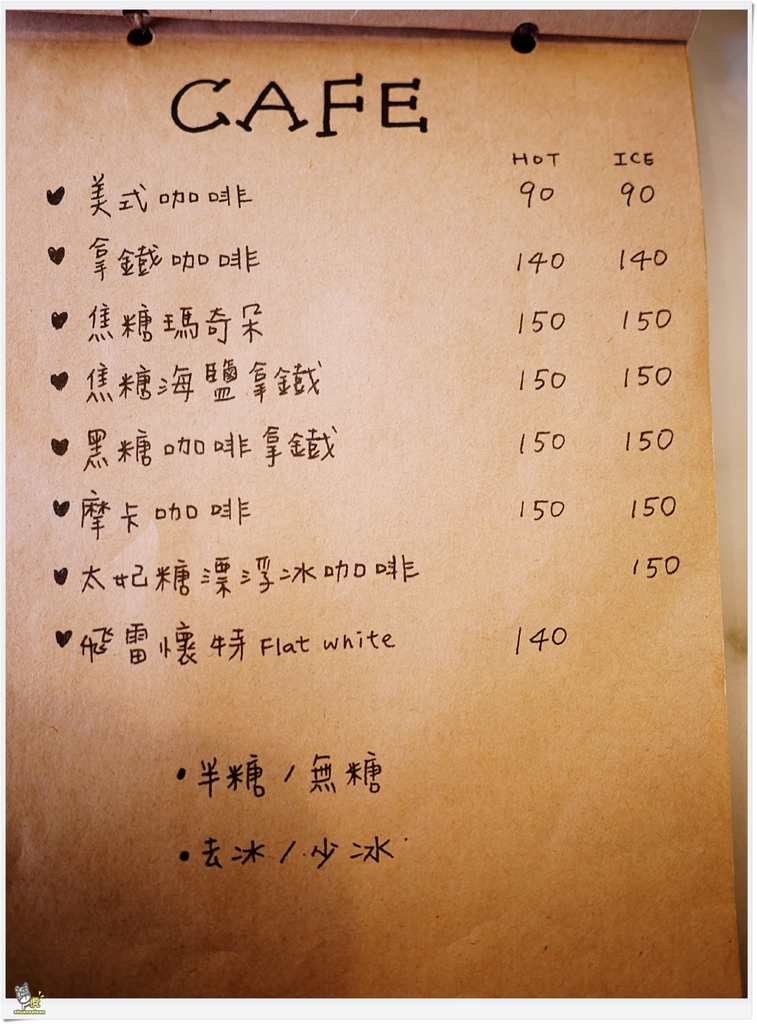 CAFE
HOT ICE
美式咖啡 90 90
拿鐵咖啡 140 140
焦糖瑪奇朵 150 150
焦糖海鹽拿鐵 150 150
黑糖咖啡拿鐵 150 150
摩卡咖啡 150 150
太妃糖漂浮冰咖啡 150
飛雷懷特 Flat white 140
• 半糖 / 無糖
• 去冰 / 少冰